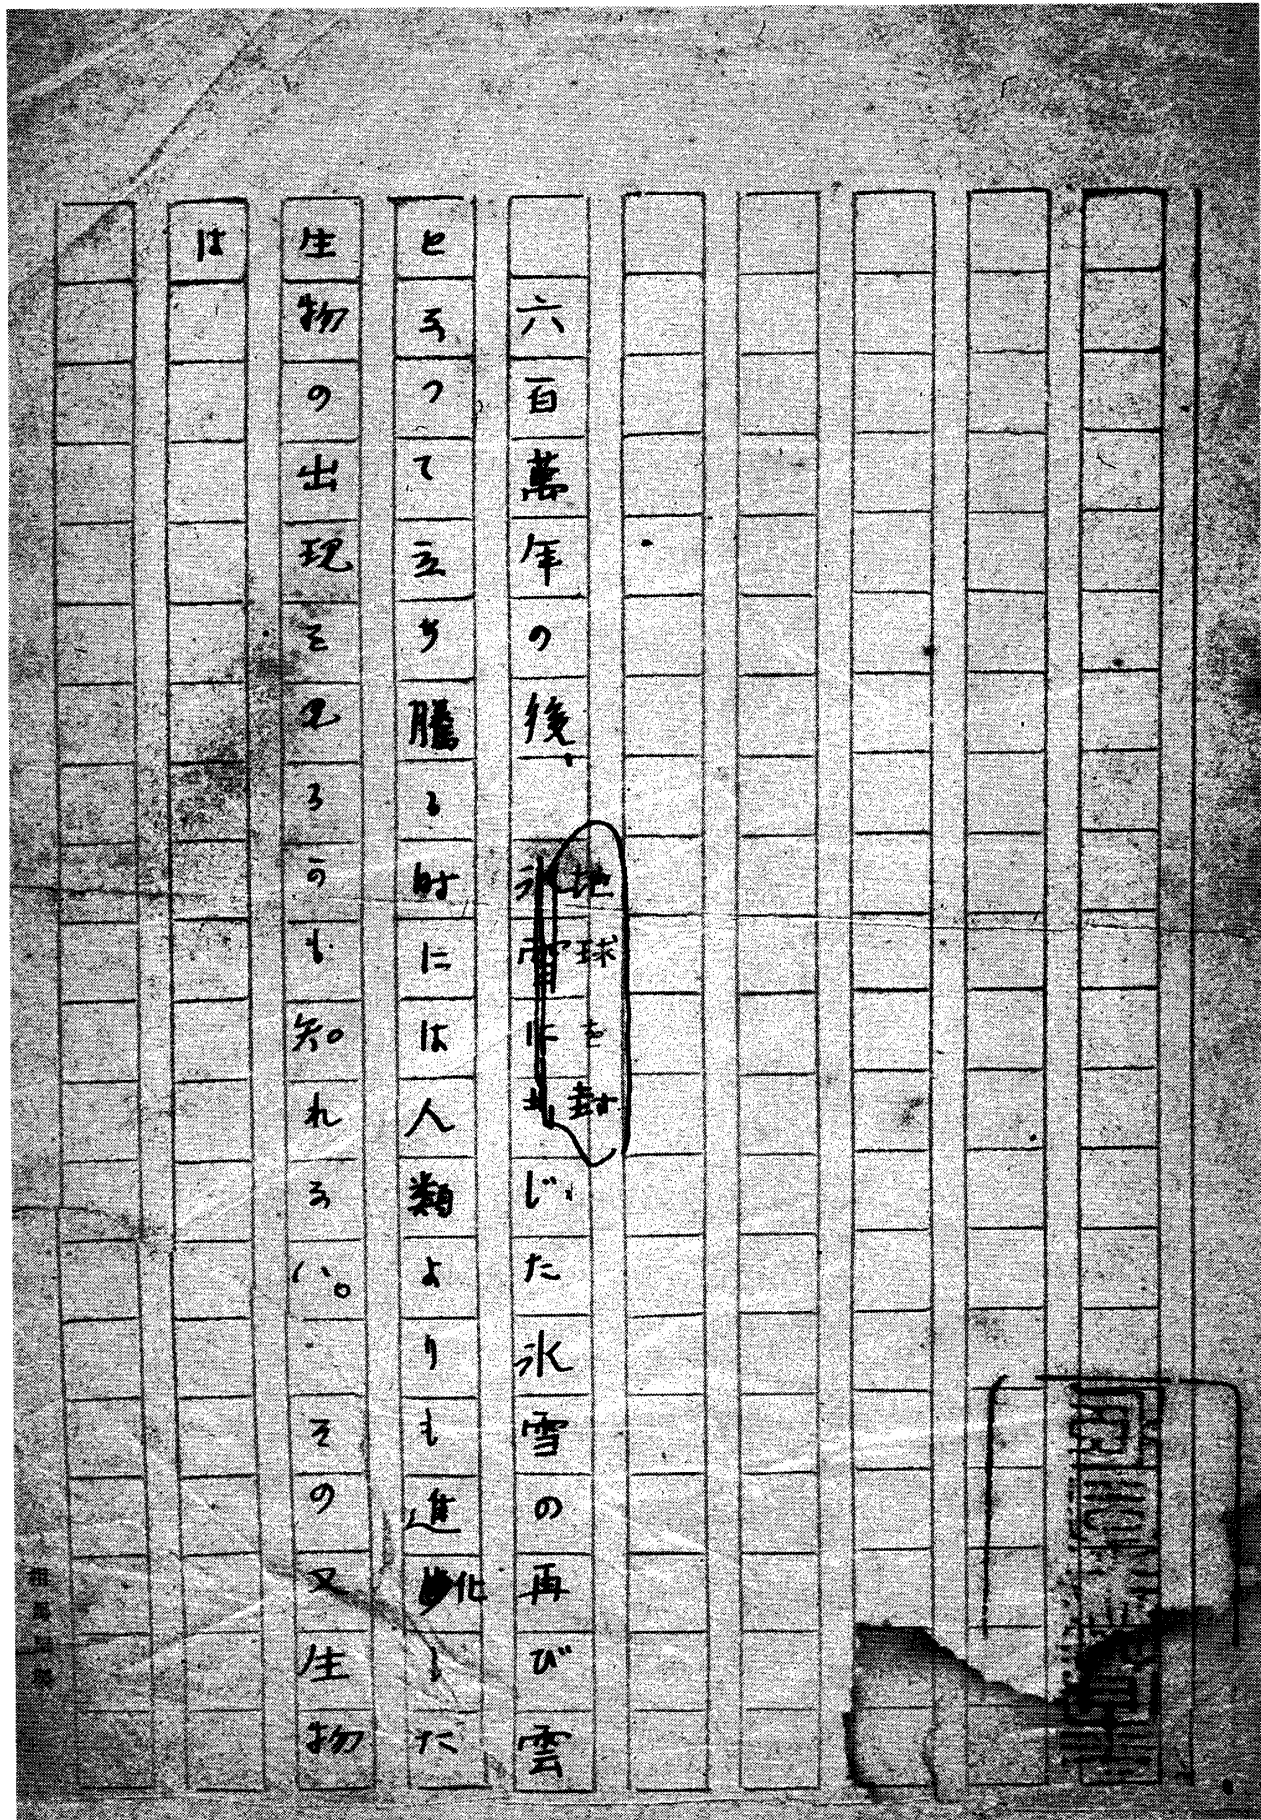 六百萬年の後、地球を封じた氷雪の再び雲
となつて立ち騰る時には人類よりも進化した
生物の出現を見るかも知れない。その又生物
は